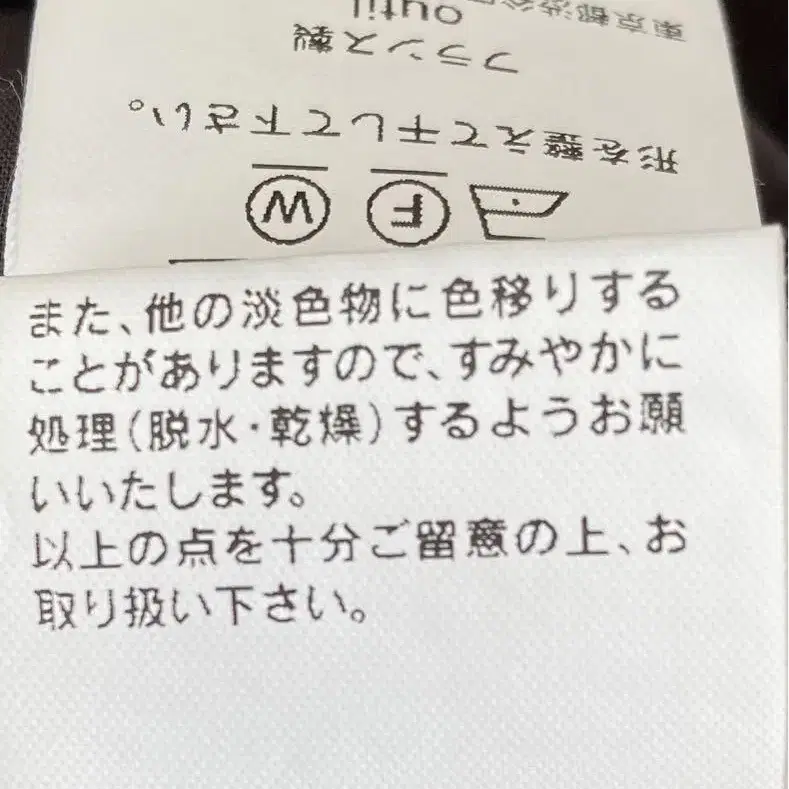 また、他の淡色物に色移りする
ことがありますので、すみやかに
処理(脱水・乾燥)するようお願
いいたします。
以上の点を十分ご留意の上、お
取り扱い下さい。
形を整えて干して下さい。
フランス製
outil
東京都渋谷
W
F